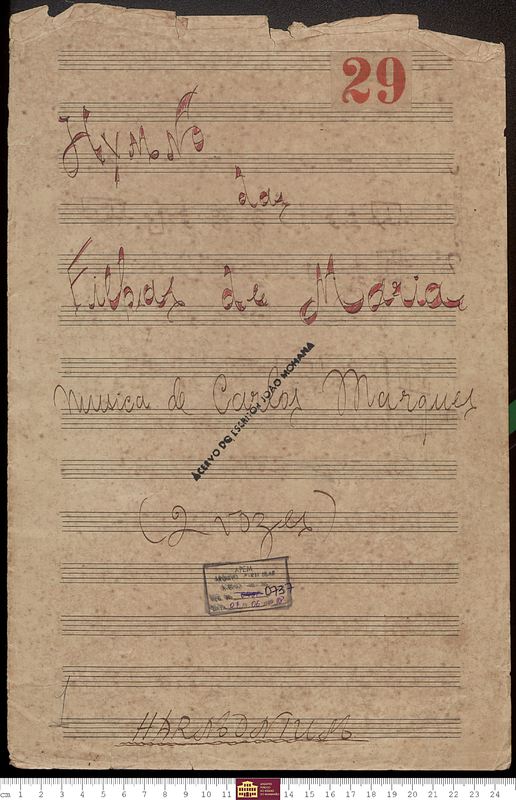 29
Hymno
das
Filhas de Maria
musica de Carlos Marques
ACERVO DO ESCRITOR JOÃO MOHANA
(2 vozes)
APEM
0737
HARMONIUM
cm 1 2 3 4 5 6 7 8 9 10 11 14 15 16 17 18 19 20 21 22 23 24